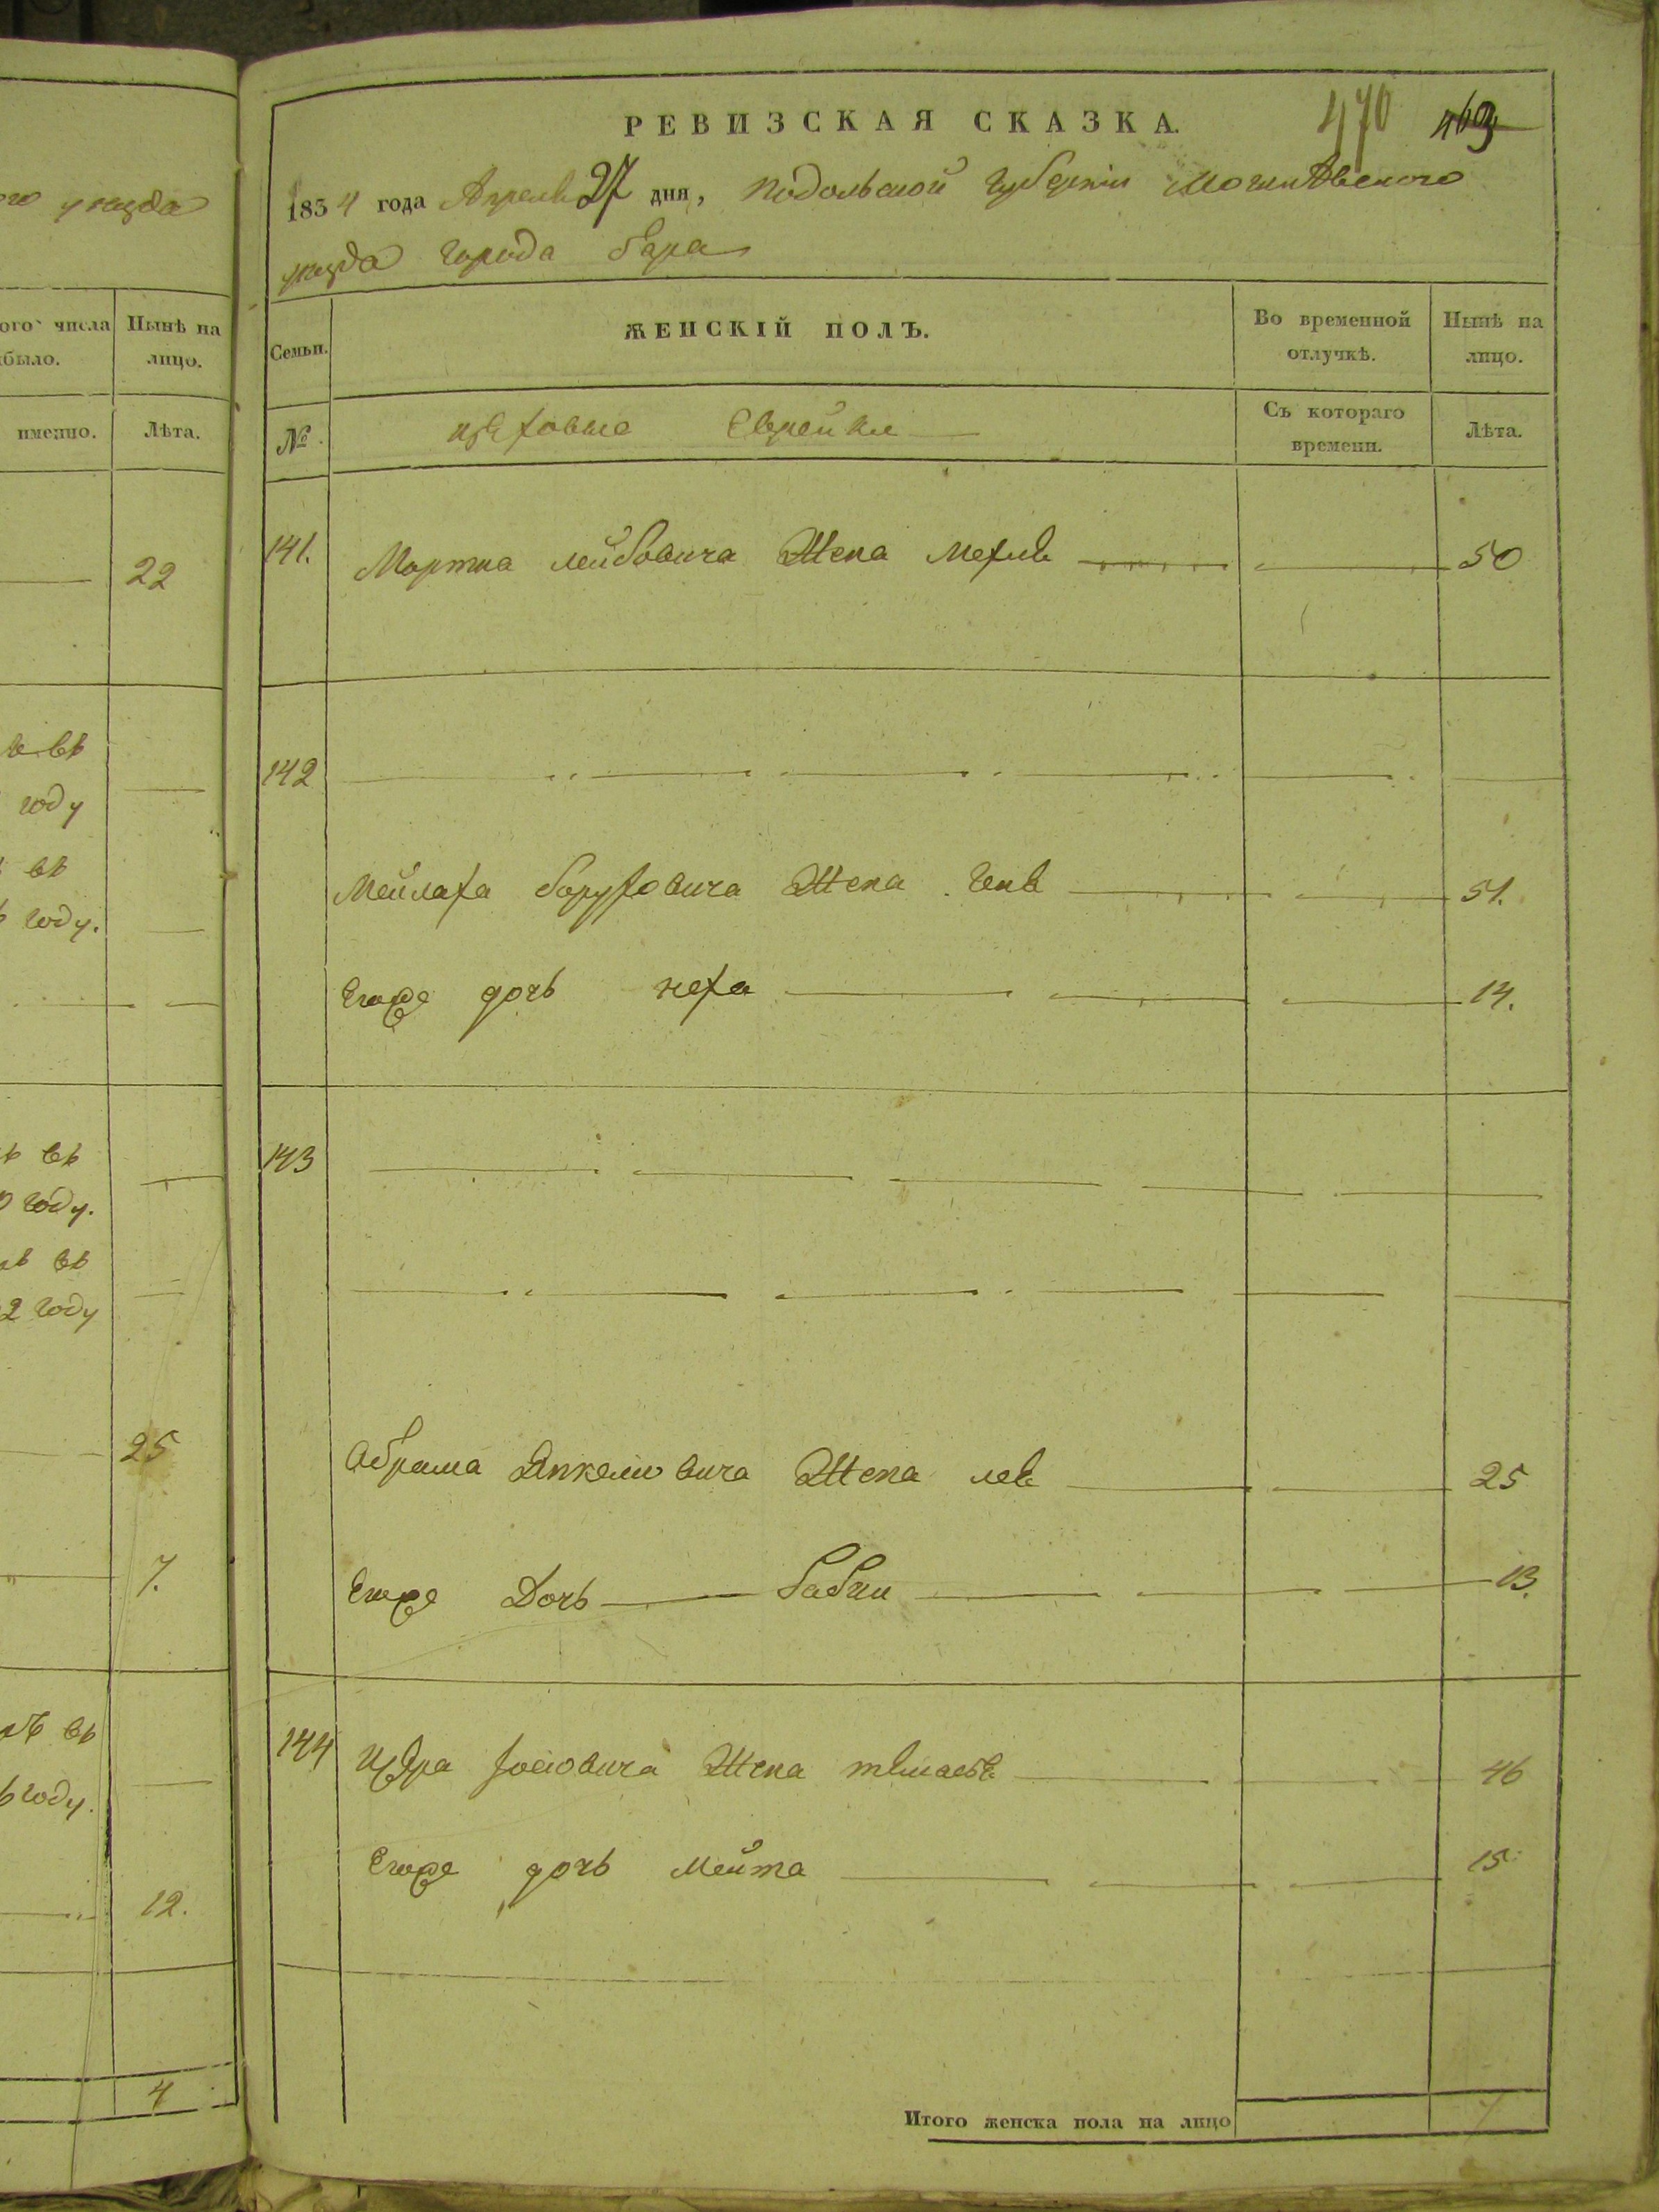 РЕВИЗСКАЯ СКАЗКА.
470 463
1834 года Апреля 27 дня, Подольской губернии Могилѣвского
уезда города бара
Семьи. ЖЕНСКІЙ ПОЛЪ. Во временной отлучкѣ. Нынѣ на лицо.
№ цеховые Еврейки Съ котораго времени. Лѣта.
141. Мортка лейбовича Жена 50
142
Мейлаха боруховича Жена Геня 51.
Егоже дочь неха 14.
143
Абрама Янкелиовича Жена лея 25
Егоже Дочь бабця 13.
144 Жена 46
Егоже дочь Мейта 15
Итого женска пола на лицо 7
го уезда
ого числа Нынѣ на
ыбыло. лицо.
именно. Лѣта.
22
въ
году
въ
году.
въ
году.
въ
2 году
25
7.
въ
6 году.
12.
4